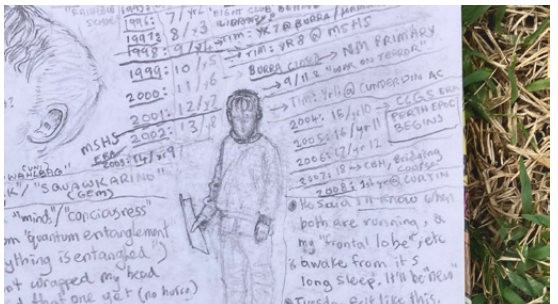 1996: 7/yr2 "FIGHT CLUB BEHIND
1997: 8/yr3
1998: 9/yr4 → TIM: YR7 @ BURRA
→ TIM: YR8 @ MSHS
1999: 10/yr5
BURRA CLOSED → NM PRIMARY
2000: 11/yr6
→ 9/11 & "WAR ON TERROR"
2001: 12/yr7
→ TIM: Yr11 @ CUNDERDIN AC
MSHS
2002: 13/yr8
2003: 14/yr9
2004: 15/yr10 → CGGS ERA
PERTH EPOC
BEGINS
2005: 16/yr11
2006: 17/yr12
2007: 18 → CBM, Bridging
course
2008: 1st yr @ CURTIN
"SQUAWKARINO"
(GEMS)
"minds"/"conciousress"
"quantum entanglement
ything is entangled")
not wrapped my head
that one yet (no horses)
He said I'll know when
both are running, &
my "frontal lobe", etc
is awake from it's
long sleep. It'll be "new"
like this.